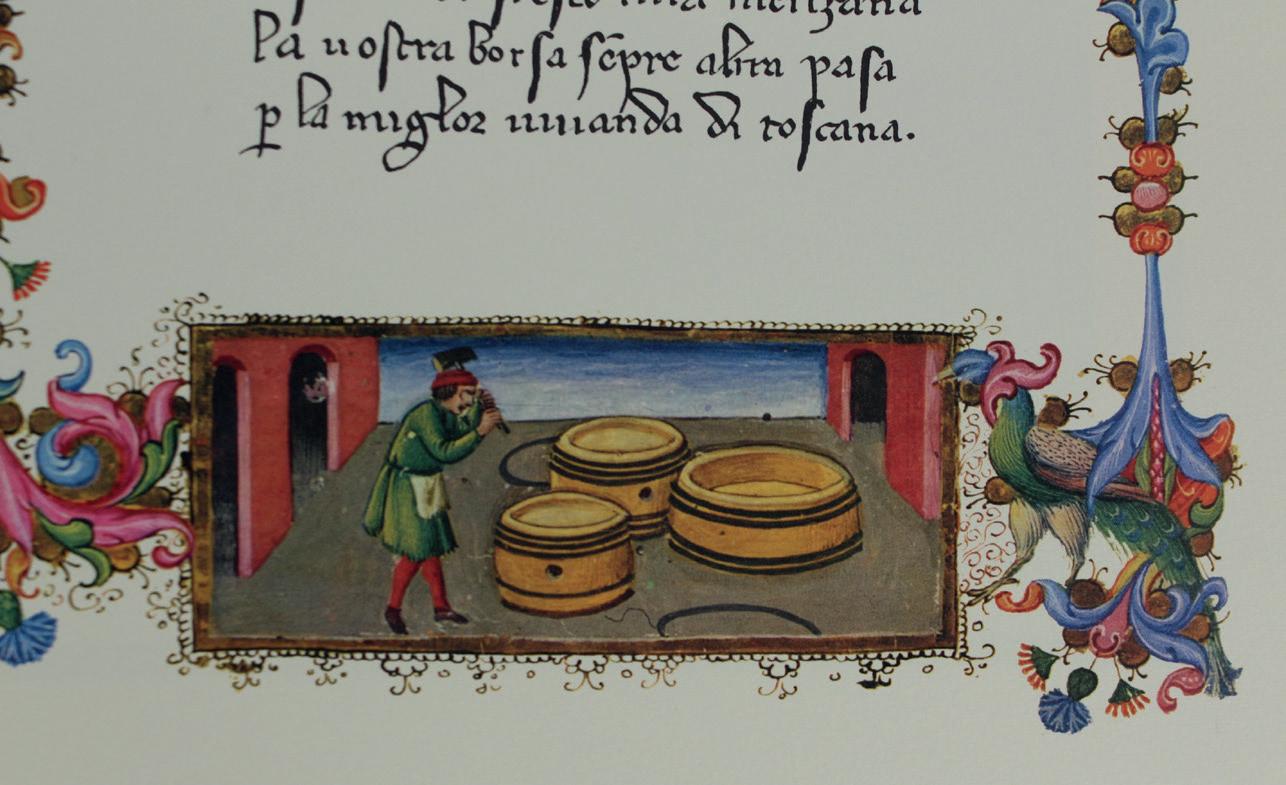 una
La uostra borsa sēpre altra pasa
ꝑ la miglor uiuanda di toscana.